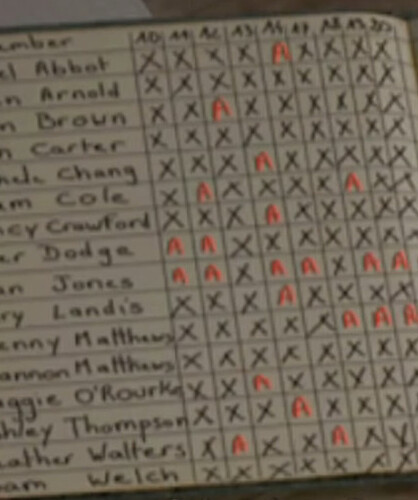 umber 10 11 12 13 14 17 18 19 20
el Abbot X X X X A X X X X
n Arnold X X X X X X X X X
n Brown X X A X X X X X X
n Carter X X X X X X X X X
Chang X X X A X X X X X
am Cole X A X X X X A X X
cy Crawford X X X A X X X X X
er Dodge A A X X X X X X X
an Jones A A X A A X A A
ry Landis X X X A X X X X
enny Matthews X X X X X A A A
annon Matthews X X X X X X X X
aggie O'Rourke X X A X X X X X
hley Thompson X X X A X X X
ather Walters X A X X A X X
am Welch X X X X X X X